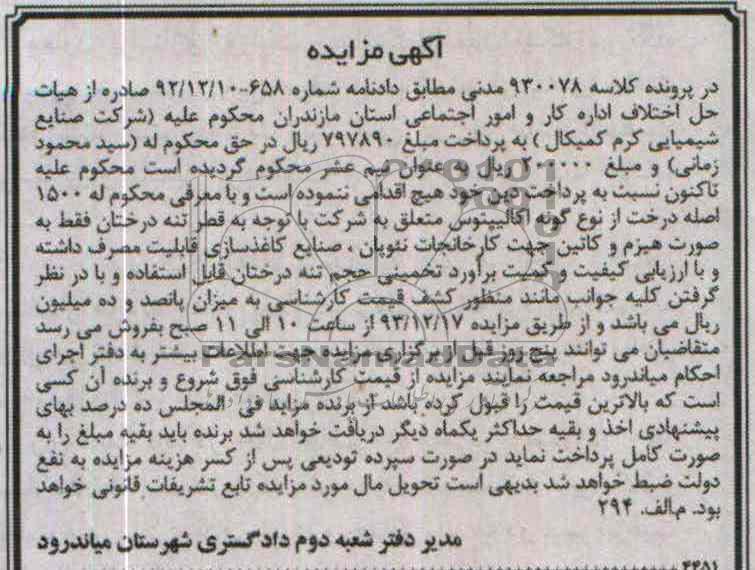 آگهی مزایده
در پرونده کلاسه ۹۳۰۰۷۸ مدنی مطابق دادنامه شماره ۶۵۸-۹۲/۱۲/۱۰ صادره از هیات
حل اختلاف اداره کار و امور اجتماعی استان مازندران محکوم علیه (شرکت صنایع
شیمیایی کرم کمیکال) به پرداخت مبلغ ۷۹۷۸۹۰ ریال در حق محکوم له (سید محمود
زمانی) و مبلغ ۲۰۰۰۰۰ ریال به عنوان نیم عشر محکوم گردیده است محکوم علیه
تاکنون نسبت به پرداخت دین خود هیچ اقدامی ننموده است و با معرفی محکوم له ۱۵۰۰
اصله درخت از نوع گونه اکالیپتوس متعلق به شرکت با توجه به قطر تنه درختان فقط به
صورت هیزم و کاتین جهت کارخانجات نئوپان ، صنایع کاغذسازی قابلیت مصرف داشته
و با ارزیابی کیفیت و کمیت برآورد تخمینی حجم تنه درختان قابل استفاده و با در نظر
گرفتن کلیه جوانب مانند منظور کشف قیمت کارشناسی به میزان پانصد و ده میلیون
ریال می باشد و از طریق مزایده ۹۳/۱۲/۱۷ از ساعت ۱۰ الی ۱۱ صبح بفروش می رسد
متقاضیان می توانند پنج روز قبل از برگزاری مزایده جهت اطلاعات بیشتر به دفتر اجرای
احکام میاندرود مراجعه نمایند مزایده از قیمت کارشناسی فوق شروع و برنده آن کسی
است که بالاترین قیمت را قبول کرده باشد از برنده مزاید فی المجلس ده درصد بهای
پیشنهادی اخذ و بقیه حداکثر یکماه دیگر دریافت خواهد شد برنده باید بقیه مبلغ را به
صورت کامل پرداخت نماید در صورت سپرده تودیعی پس از کسر هزینه مزایده به نفع
دولت ضبط خواهد شد بدیهی است تحویل مال مورد مزایده تابع تشریفات قانونی خواهد
بود. م.الف. ۲۹۴
مدیر دفتر شعبه دوم دادگستری شهرستان میاندرود
۴۴۵۱
ParsNamadData